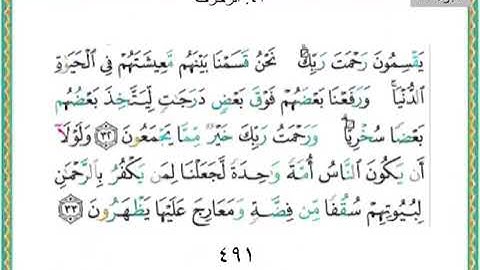 يَقْسِمُونَ رَحْمَتَ رَبِّكَ ۚ نَحْنُ قَسَمْنَا بَيْنَهُم مَّعِيشَتَهُمْ فِى ٱلْحَيَوٰةِ
ٱلدُّنْيَا ۚ وَرَفَعْنَا بَعْضَهُمْ فَوْقَ بَعْضٍ دَرَجَٰتٍ لِّيَتَّخِذَ بَعْضُهُم
بَعْضًا سُخْرِيًّا ۗ وَرَحْمَتُ رَبِّكَ خَيْرٌ مِّمَّا يَجْمَعُونَ ٣٢ وَلَوْلَآ
أَن يَكُونَ ٱلنَّاسُ أُمَّةً وَٰحِدَةً لَّجَعَلْنَا لِمَن يَكْفُرُ بِٱلرَّحْمَٰنِ
لِبُيُوتِهِمْ سُقُفًا مِّن فِضَّةٍ وَمَعَارِجَ عَلَيْهَا يَظْهَرُونَ ٣٣
٤٩١